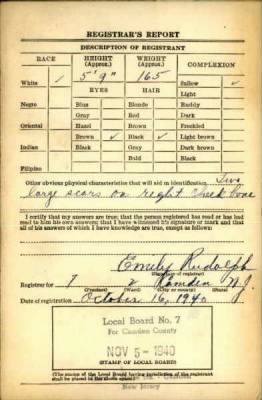 REGISTRAR'S REPORT
DESCRIPTION OF REGISTRANT
RACE HEIGHT (Approx.) WEIGHT (Approx.) COMPLEXION
White ✓ 5' 9" 165 Sallow ✓
EYES HAIR Light
Negro Blue Blonde Ruddy
Gray Red Dark
Oriental Hazel Brown Freckled
Brown ✓ Black ✓ Light brown
Indian Black Gray Dark brown
Bald Black
Filipino
Other obvious physical characteristics that will aid in identification Two
large scars on right cheek bone
I certify that my answers are true; that the person registered has read or has had
read to him his own answers; that I have witnessed his signature or mark and that
all of his answers of which I have knowledge are true, except as follows:
Emily Rudolph
(Signature of registrar)
Registrar for 7 2 Camden N.J.
(Precinct) (Ward) (City or county) (State)
Date of registration October 16, 1940
Local Board No. 7
For Camden County
NOV 5 - 1940
(STAMP OF LOCAL BOARD)
(The stamp of the Local Board having jurisdiction of the registrant
shall be placed in the above space.)
Camden
New Jersey